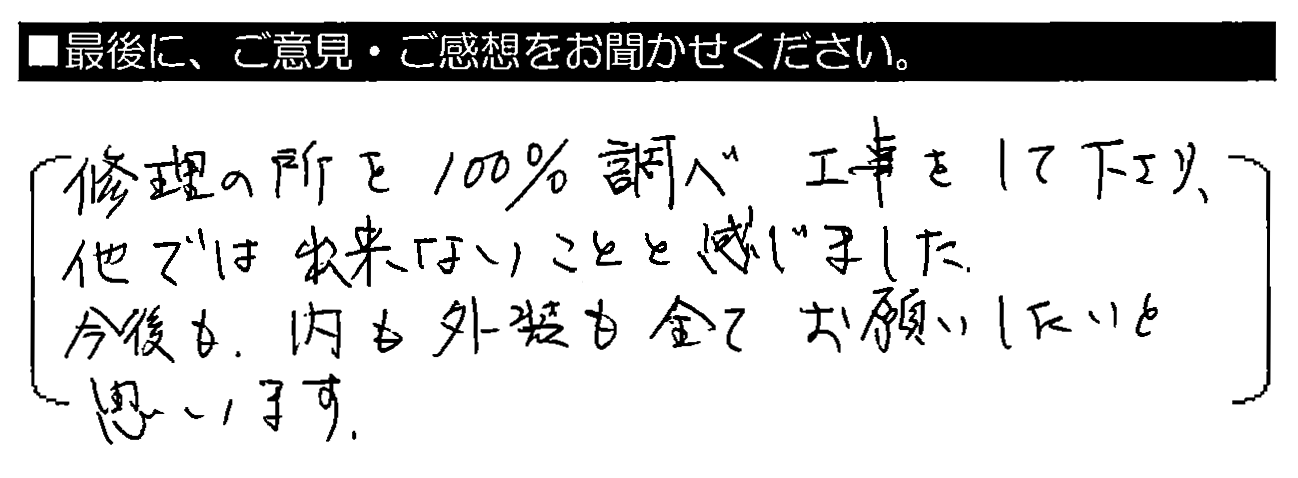 ■最後に、ご意見・ご感想をお聞かせください。
修理の所を100%調べ 工事をして下さり、
他では出来ないことと感じました。
今後も、内も外装も全てお願いしたいと
思います。